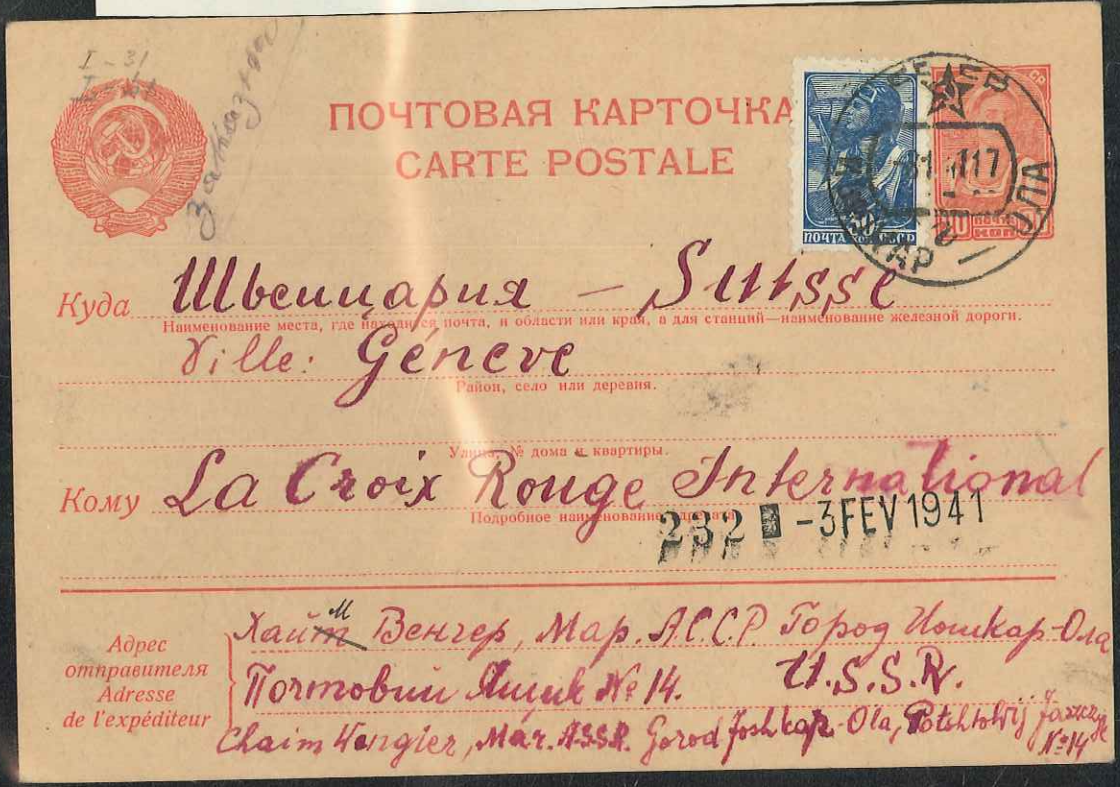 I - 31
заказная
ПОЧТОВАЯ КАРТОЧКА
CARTE POSTALE
ПОЧТА СССР
30
ЙОШКАР — ОЛА
Куда Швейцария — Suisse
Наименование места, где находится почта, и области или края, а для станций—наименование железной дороги.
Ville: Genève
Район, село или деревня.
Улица, № дома и квартиры.
Кому La Croix Rouge International
Подробное наименование адресата
232 -3 FEV 1941
Адрес отправителя
Adresse de l'expéditeur
Хаим Венгер, Мар. А.С.С.Р. Город Йошкар-Ола
Почтовии Ящик № 14. U.S.S.R.
Chaim Wengier, Mar. ASSR. Gorod Joshkar-Ola, Potchtowij Jaszczyk № 14